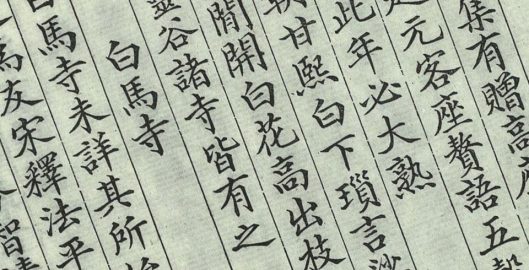 集有贈高
元客座贅語五
此年必大熟
甘熙白下瑣言
間開白花高出枝
靈谷諸寺皆有之
白馬寺
白馬寺未詳其所
馬友宋釋法平
智